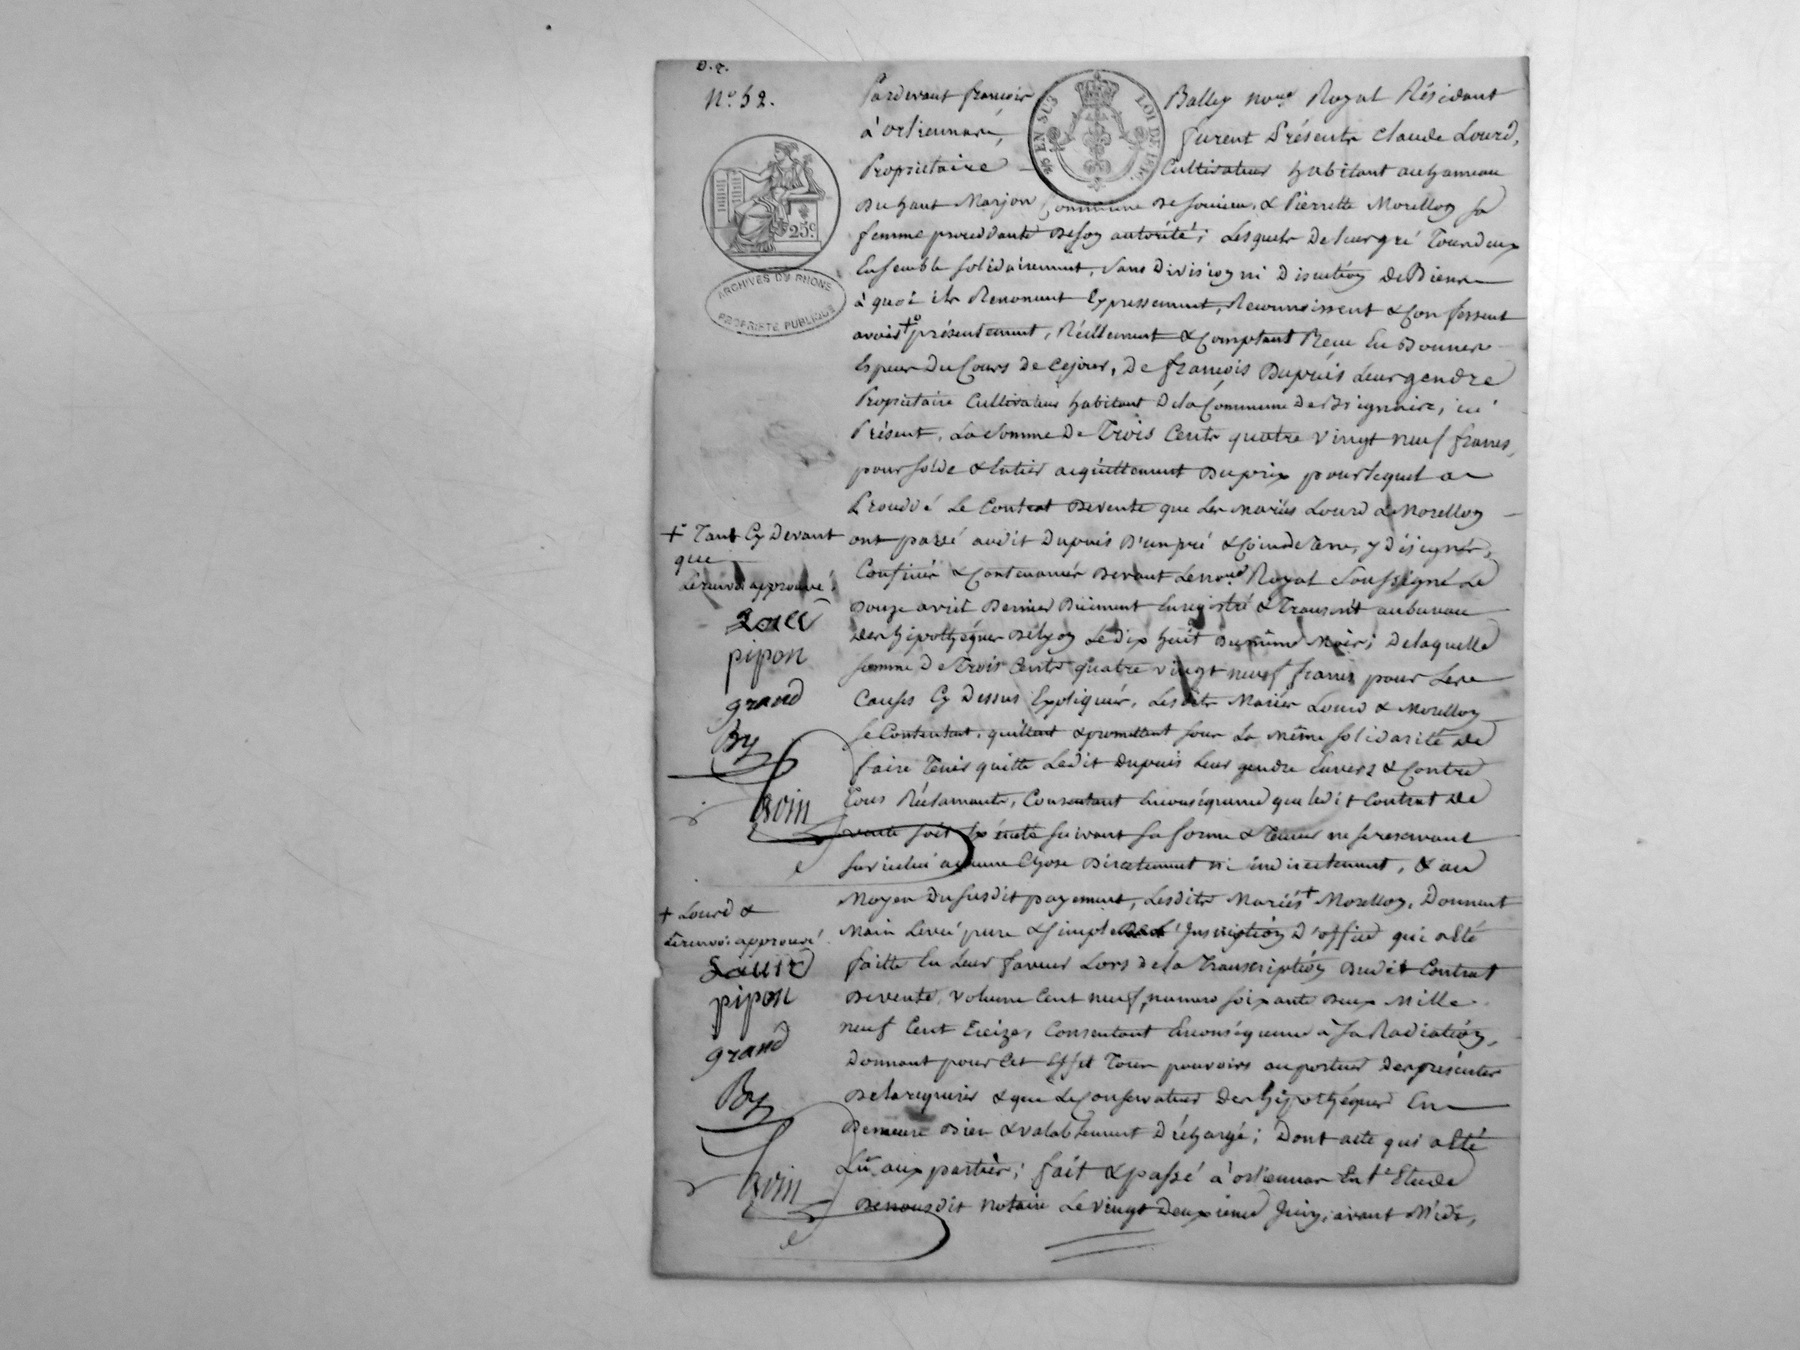 D. q.
N.° 52.
Pardevant françois Balley no.re Royal Résidant
à orliennard, furent Présents Claude Lourd,
Propriétaire Cultivateur habitant au hameau
Du haut Marjon Commune De soucieu, & Pierrette Morellon sa
femme procédante De son autorité; Lesquels De leur gré Tous deux
Ensemble solidairement, sans Division ni Discution De Biens
à quoi ils Renoncent Expressement, Reconnoissent & Confessent
avoir + présentement, Réellement & Comptant Reçu En Bonnes
Espèces Du Cours De ce jour, De françois Dupuis Leur gendre
Propriétaire Cultivateur habitant De la Commune De Brignais, ici
Présent, La somme De Trois Cents quatre vingt neuf francs,
pour solde & Entier acquittement Du prix pour lequel a
Procédé Le Contrat De vente que Les Mariés Lourd & Morellon
ont passé audit Dupuis D'un pré & Coin de Terre, y Désignés,
Confinés & Contenancés Devant Le no.re Royal Soussigné Le
Douze avril Dernier Dûement Enregistré & Transcrit au bureau
Des hipothéques De Lyon Le Dix huit Du même Mois; De laquelle
somme De Trois Cents quatre vingt neuf francs pour Les
Causes Cy Dessus Expliquées, Lesdits Mariés Lourd & Morellon
se Contentent, quittent & promettent sous La même solidarité De
faire Tenir quitte Ledit Dupuis Leur gendre Envers & Contre
Tous Réclamants, Consentant En conséquence que ledit Contrat De
vente soit Exécuté suivant sa forme & Teneur ne se reservant
sur icelui aucune Chose Directement ni indirectement, & au
Moyen Du susdit payement, Lesdits Mariés + Morellon, Donnent
Main Levée pure & simple De L'Inscription D'office qui a Eté
faitte En Leur faveur Lors De la Transcription Dudit Contrat
De vente, volume Cent neuf, numero soixante Deux Mille
neuf Cent Treize, Consentant En conséquence à sa Radiation,
Donnant pour Cet Effet Tous pouvoirs au porteur Des présentes
De la requerir & que Le Conservateur Des hipothéques En
Demeure Bien & valablement Déchargé; Dont acte qui a Eté
Lu aux parties; fait & passé à orliennar En l'Etude
De nousdit Notaire Le vingt Deuxieme Juin, avant Midi,
+ Tant Cy Devant
que
Le renvoi approuvé.
pipon
grand
By
+ Lourd &
Le renvoi approuvé.
Lourd
pipon
grand
By
25c.
ARCHIVES DU RHÔNE
PROPRIÉTÉ PUBLIQUE
EN SUS
LOI DE 1816.